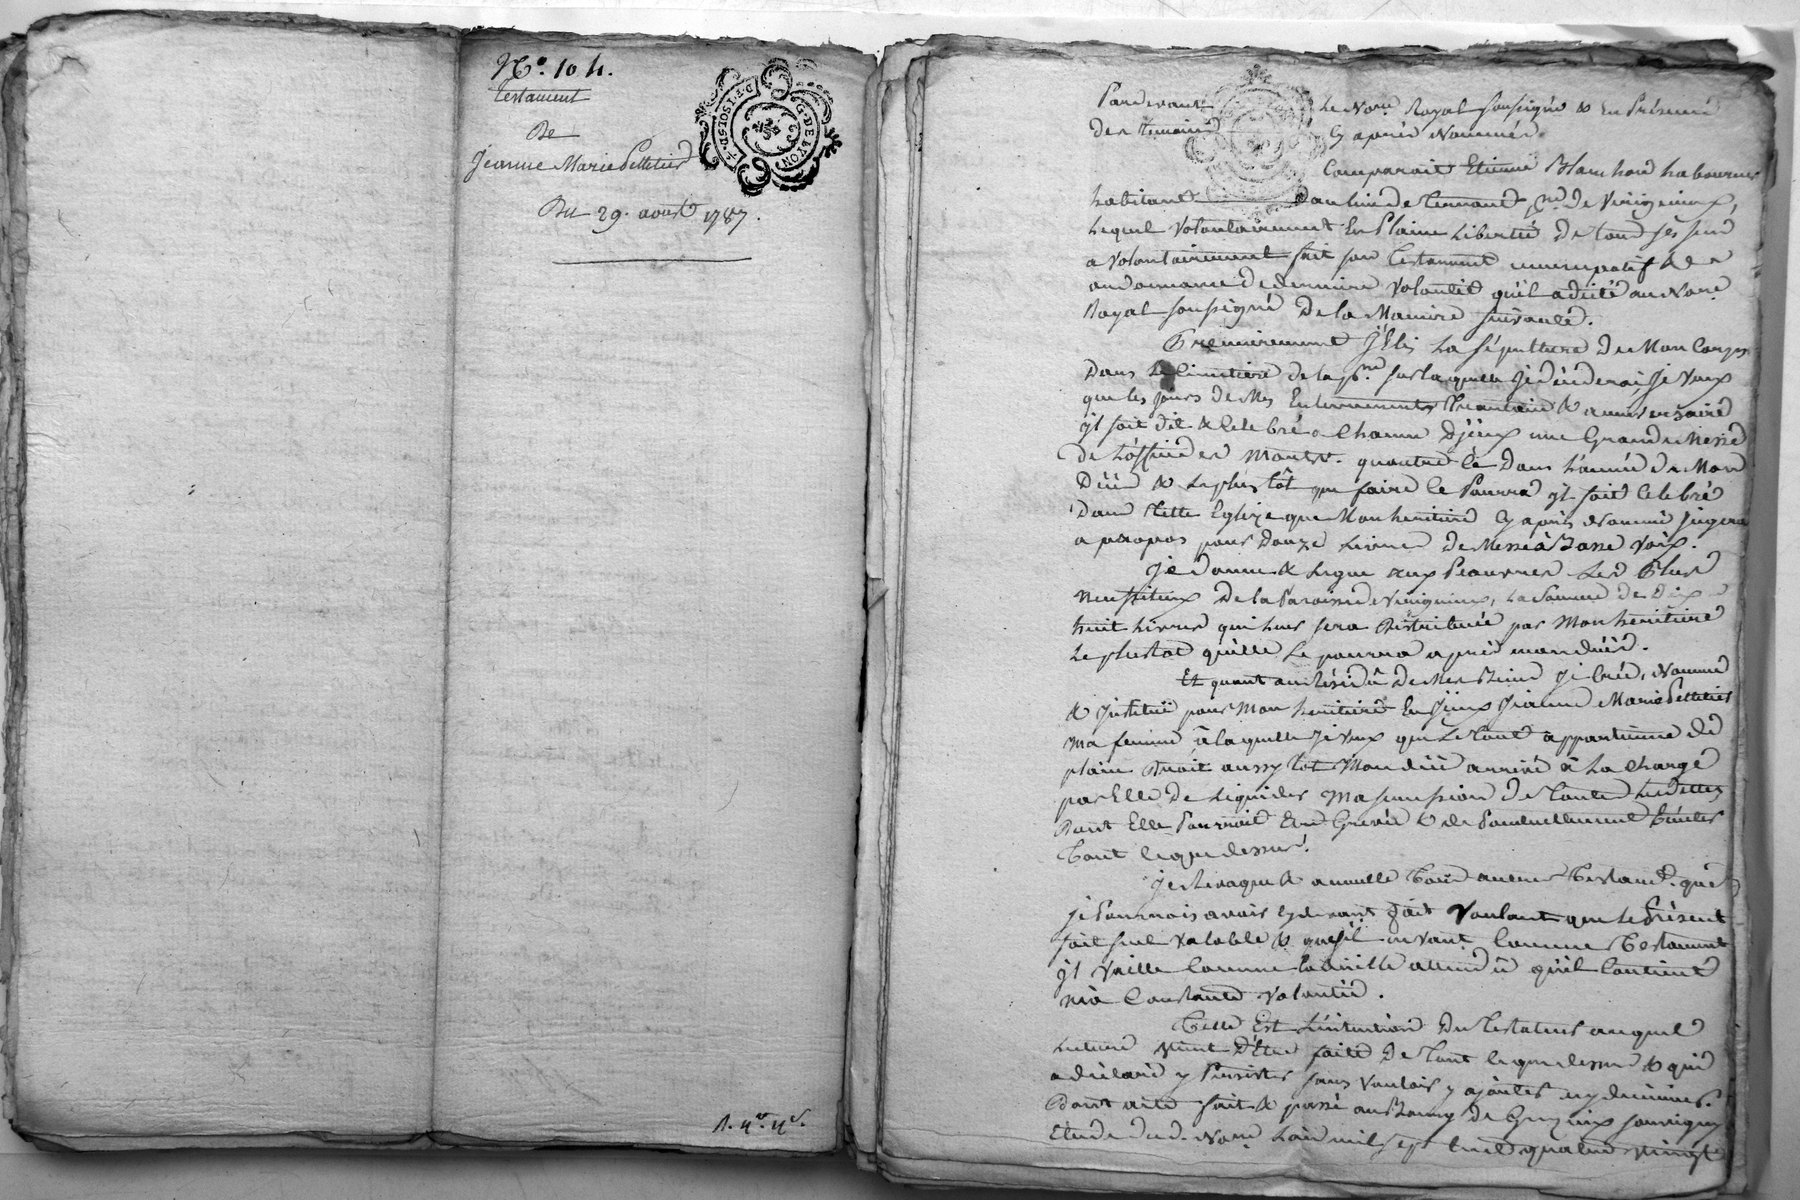 N.o 104.
testament
De
Jeanne Marie Pelletier
G. DE LYON
Du 29. aoust 1787.
Pardevant Le No.re Royal Soussigné & En Présence
des temoins Cy après Nommés.
Comparait Etienne Blanchard Laboureur
habitant au lieu de Pnd. de Verigneux,
Lequel Volontairement En Plaine Liberté De tous ses sens
a Volontairement fait son Testament nuncupatif & de
ordonnance De derniere Volonté qu'il a dicté au No.re
Royal soussigné De la Maniere suivante.
Premierement J'Elis La sépulture De Mon Corps
Dans Le Cimetiere de la psse. sur laquelle Je déciderai, Je Veux
que les jours De Mes Enterrements Quarantaine & anniversaire
yl soit dit & Célébré a Chacun D'jceux une Grande Messe
De L'office des Morts. quantrelé Dans L'année De Mon
Décé & Le plus tôt que faire Ce Pourra yl soit Celebré
Dans telle Eglize que Mon heritiere Cy après Nommée Jugera
a propos pour Douze Livres De Messe à Basse Voix.
Je Donne & Legue aux Peauvres Les Plus
necessiteux De la Paroisse de Verigneux, La Somme de Dix
huit Livres qui Leur sera Distribuée par Mon heritiere
Le plustot qu'elle Le pourra après mon décé.
Et quant au Résidû De Mes Biens Je Crée, Nomme
& Jnstitue pour Mon heritiere En Jceux Jeanne Marie Pelletier
Ma femme à laquelle Je Veux que Le tout appartienne de
plain Droit aussy tot Mon décé arrivé à La Charge
par Elle De Liquider Ma succession De toutes Les dettes
Dont Elle Pourroit Etre Grevée & de Ponctuellement Exécuter
Tout Ce que dessus.
Je Revoque & annulle tous autres Testamts. que
Je Pourrois avoir Cy devant fait Voulant que Le Présent
soit seul valable & que s'il ne vaut Comme Testament
yl Vaille Comme Codicille attendû qu'il Contient
ma Constante Volonté.
Telle Est L'intention Du Testateur auquel
Lecture Vient D'Etre faite De tout Ce que dessus & qui
a déclaré y Persister sans Vouloir y ajouter ny diminuer.
Dont acte fait & passé au Bourg De
Etude dud. No.re L'an mil sept Cent quatre Vingt